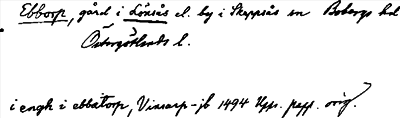 Ebborp, gård i Lönsås el. by i Skeppsås sn Bobergs hd
Östergötlands l.
i engh i ebbatorp, Vinarp-jb 1494 Upps. papp. orig.